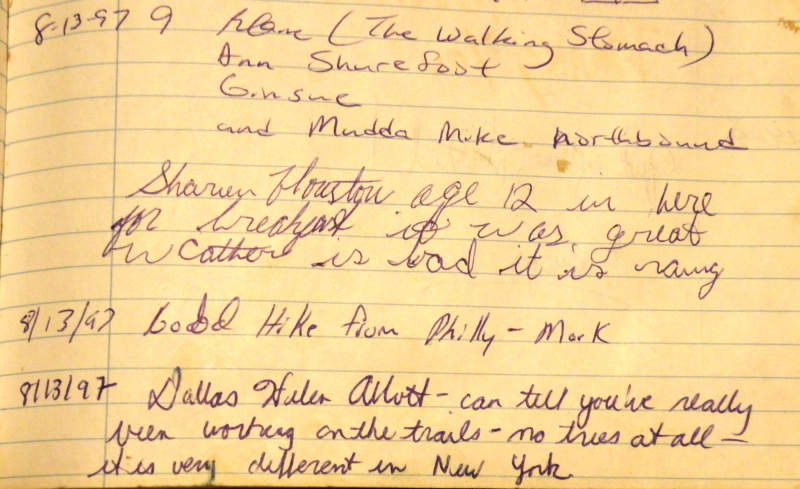 8-13-97 9 (The Walking Stomach)
Ann Shurefoot
Ginsue
and Mudda Mike northbound
Sharien Houston age 12 in here
for breakfast it was great
Weather is bad it is raing
8/13/97 Good Hike from Philly - Mark
8/13/97 Dallas Helen Allott - can tell you've really
been working on the trails - no trees at all -
it is very different in New York